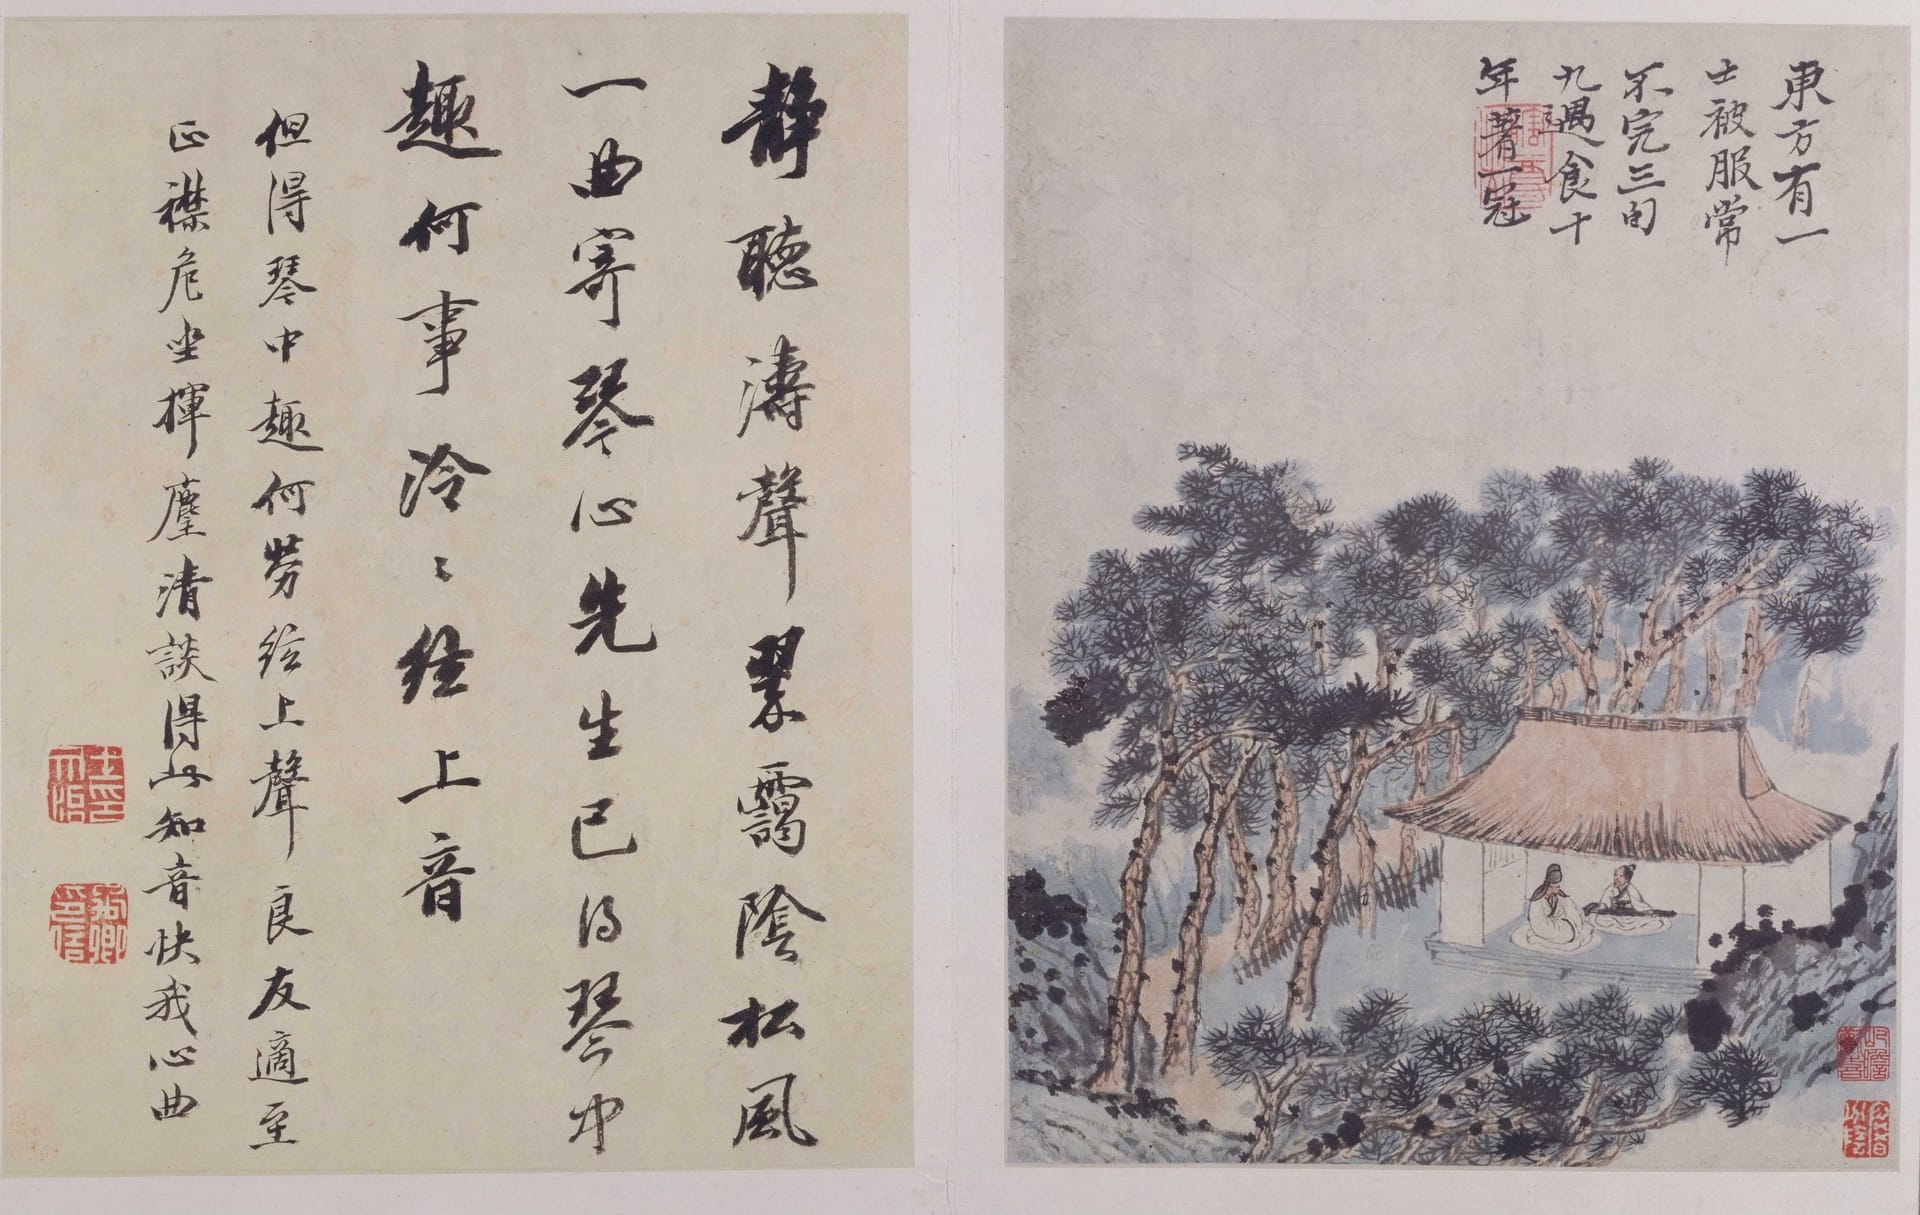 東方有一
士被服常
不完三旬
九遇食十
年著一冠
靜聽濤聲翠靄陰松風
一曲寄琴心先生已得琴中
趣何事泠〻絃上音
但得琴中趣何勞絃上聲良友適至
正襟危坐揮麈清談得此知音快我心曲